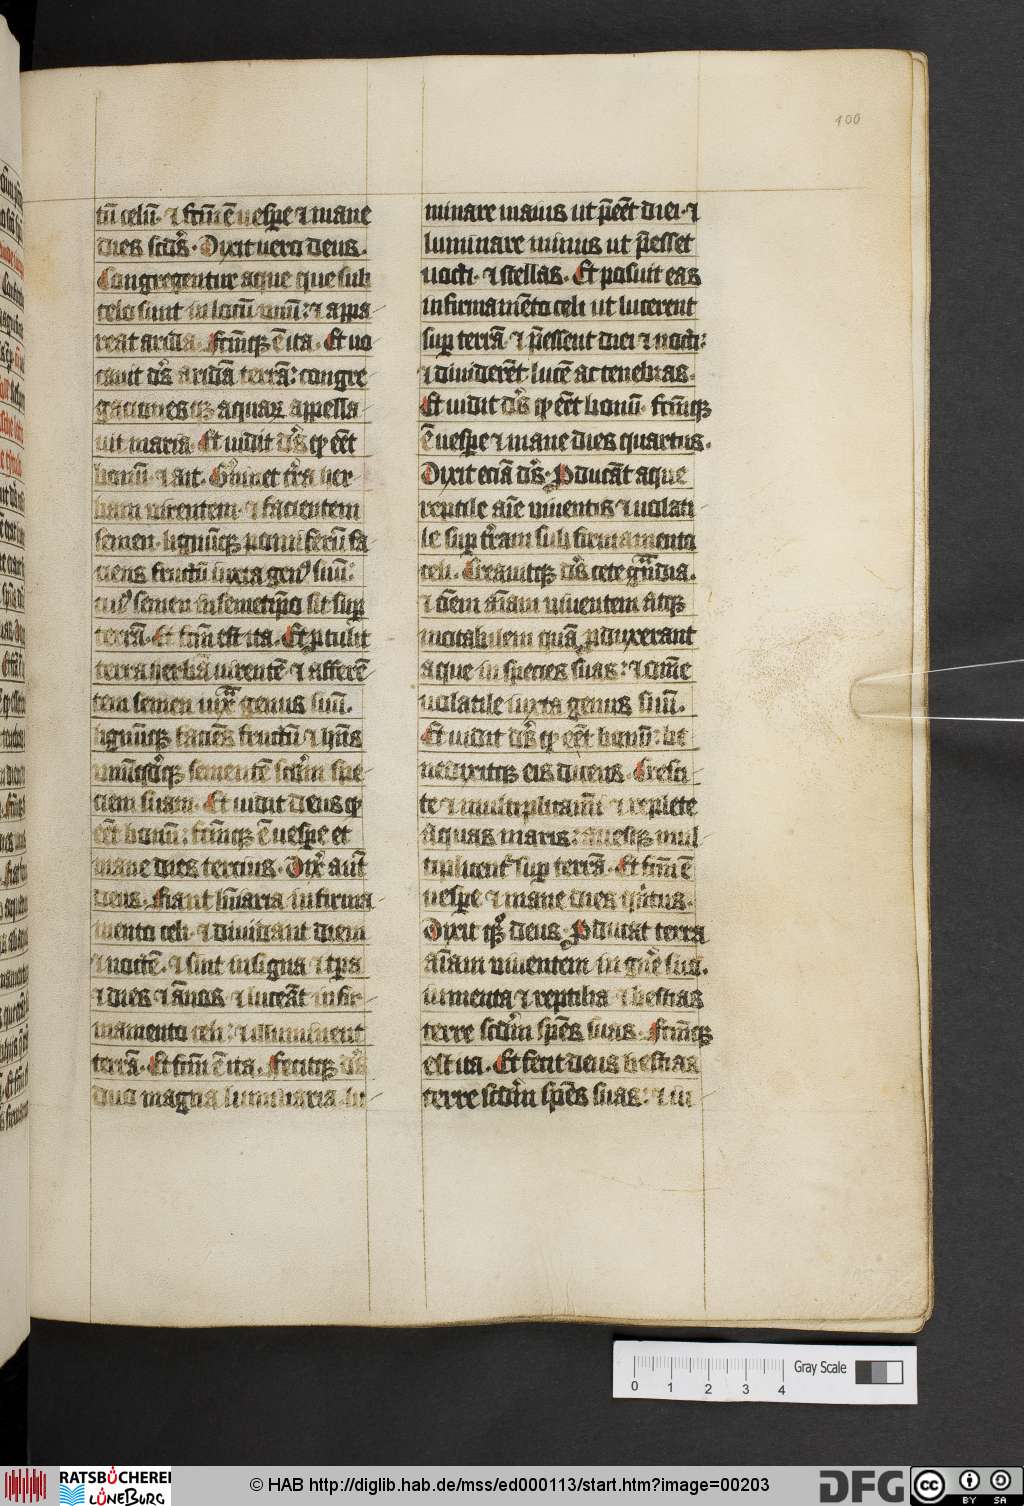 100
tū celū · ⁊ fc̄m ē vespe ⁊ mane
dies scd̄s · Dixit vero deus ·
Congregentur aque que sub
celo sunt in locū vnū : ⁊ appa
reat arida · fc̄mq; ē ita · Et vo
cauit ds̄ aridā terrā : congre
gaciones q; aquaꝝ appella
uit maria · Et vidit ds̄ ꝙ eēt
bonū · ⁊ ait · G̾minet tr̄ra her
bam virentem · ⁊ facientem
semen · lignūq; pomiferū fa
ciens fructū iuxta gen⁹ suū :
cui⁹ semen in semetip̄o sit sup̄
terrā · Et fc̄m est ita · Et ꝓtulit
terra herbā virentē · ⁊ afferē
tem semen iuxᷓ genus suū ·
lignūq; faciēs fructū · ⁊ hn̄s
vnūqd̄q; sementē scdm̄ spe
ciem suam · Et vidit deus ꝙ
eēt bonū : fc̄mq; ē vespe et
mane dies tercius · Dix̄ aūt
deus · Fiant lūiaria in firma
mento celi · ⁊ diuidant diem
⁊ noctē · ⁊ sint in signa ⁊ tp̄a
⁊ dies ⁊ ānos · ⁊ luceāt in fir
mamento celi : ⁊ illuminent
terrā · Et fc̄m ē ita · Fecitq; ds̄
duo magna luminaria · lu
minare maius ut p̄eēt diei · ⁊
luminare minus ut p̄esset
nocti · ⁊ stellas · Et posuit eas
in firmamēto celi ut lucerent
sup̄ terrā · ⁊ p̄essent diei ⁊ nocti :
⁊ diuiderēt lucē ac tenebras ·
Et vidit ds̄ ꝙ eēt bonū · fc̄mq;
ē vespe ⁊ mane dies quartus ·
Dixit eciā ds̄ · Ꝓducāt aque
reptile aīe viuentis ⁊ volati
le sup̄ tr̄ram sub firmamento
celi · Creauitq; ds̄ cete gᷓndia ·
⁊ oēm aīam viuentem atq;
motabilem quā ꝓduxerant
aque in species suas : ⁊ om̄e
volatile iuxta genus suū ·
Et vidit ds̄ ꝙ eēt bonū : be
nedixitq; eis dicens · Cresci
te ⁊ multiplicamī · ⁊ replete
aquas maris : auesq; mul
tiplicent̾ sup̄ terrā · Et fc̄m ē
vespe ⁊ mane dies qⁱntus ·
Dixit qꝫ deus · Ꝓducat terra
aīam viuentem in gn̄e suo ·
iumenta ⁊ reptilia · ⁊ bestias
terre scdm̄ spēs suas · fc̄mq;
est ita · Et fecit deus bestias
terre scdm̄ spēs suas : ⁊ iu
Gray Scale
0 1 2 3 4
RATSBÜCHEREI LÜNEBURG
© HAB http://diglib.hab.de/mss/ed000113/start.htm?image=00203
DFG
cc BY SA